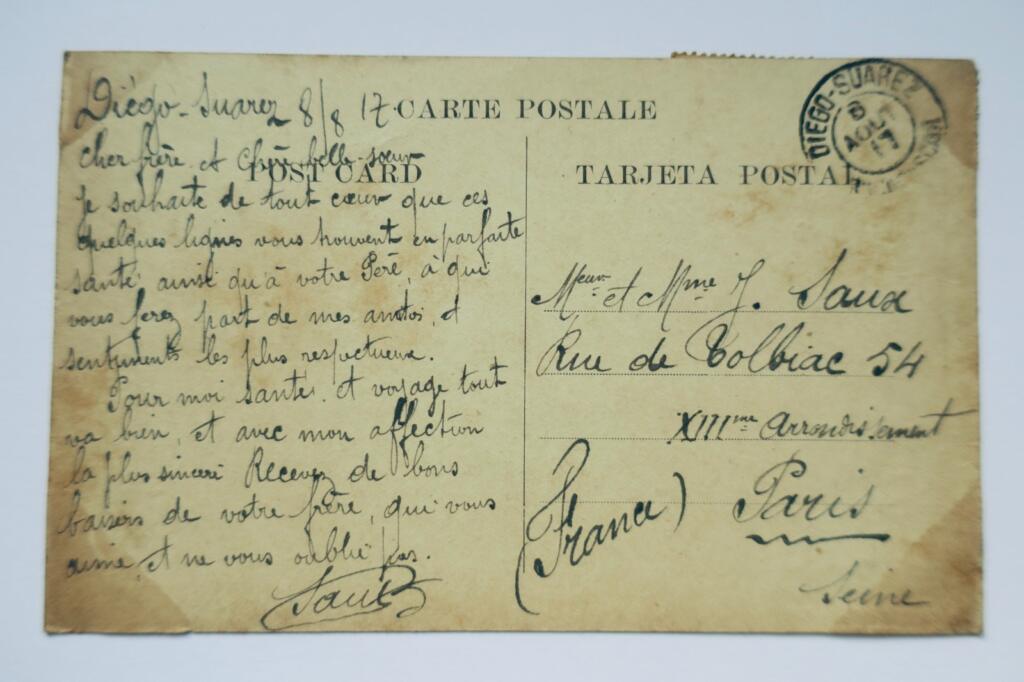 Diégo-Suarez 8/8 17
CARTE POSTALE
POST CARD
TARJETA POSTAL
DIEGO-SUAREZ
AOUT
17
cher frère et chère belle-soeur
je souhaite de tout cœur que ces
quelques lignes vous trouvent en parfaite
santé, ainsi qu'à votre Père, à qui
vous ferez part de mes et
sentiments les plus respectueux.
Pour moi santé et voyage tout
va bien, et avec mon affection
la plus sincère Recevez de bons
baisers de votre frère, qui vous
aime et ne vous oublie pas.
Meur et Mme J. Saux
Rue de Tolbiac 54
XIIIme Arrondissement
Paris
(France)
Seine